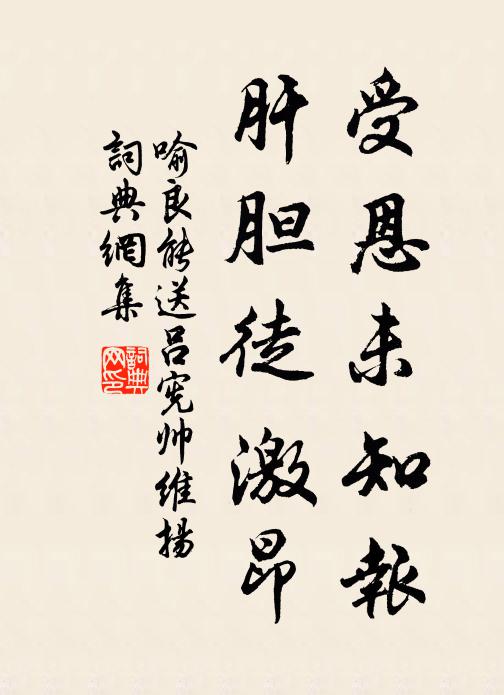 受恩未知報
肝胆徒激昂
喻良能送吕宪帅维揚
詞典網集
詞典网印